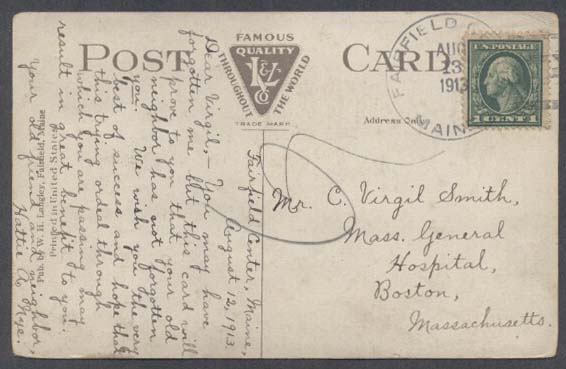 POST CARD
FAMOUS
QUALITY
THROUGHOUT THE WORLD
Co
TRADE MARK
Address Only
FAIRFIELD
AUG
13
1913
MAINE
U.S. POSTAGE
1 CENT 1
Fairfield Center, Maine,
August 12, 1913.
Dear Virgil,- You may have
forgotten me but this card will
prove to you that your old
neighbor has not forgotten
you. We wish you the very
best of success and hope that
this trying ordeal through
which you are passing may
result in great benefit to you.
Your old friend and neighbor,
Hattie A. Nye.
Printed in United States
Pub. by W. H. Langley, Fairfield, Maine
Mr. C. Virgil Smith,
Mass. General
Hospital,
Boston,
Massachusetts.